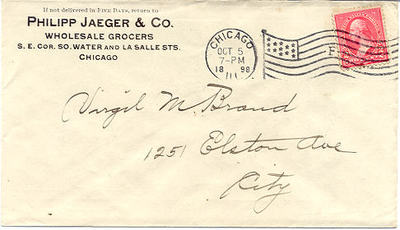 If not delivered in FIVE DAYS, return to
PHILIPP JAEGER & CO.
WHOLESALE GROCERS
S. E. COR. SO. WATER AND LA SALLE STS.
CHICAGO
CHICAGO
OCT 5
7-PM
18 98
ILL
Virgil M. Brand
1251 Elston Ave
City